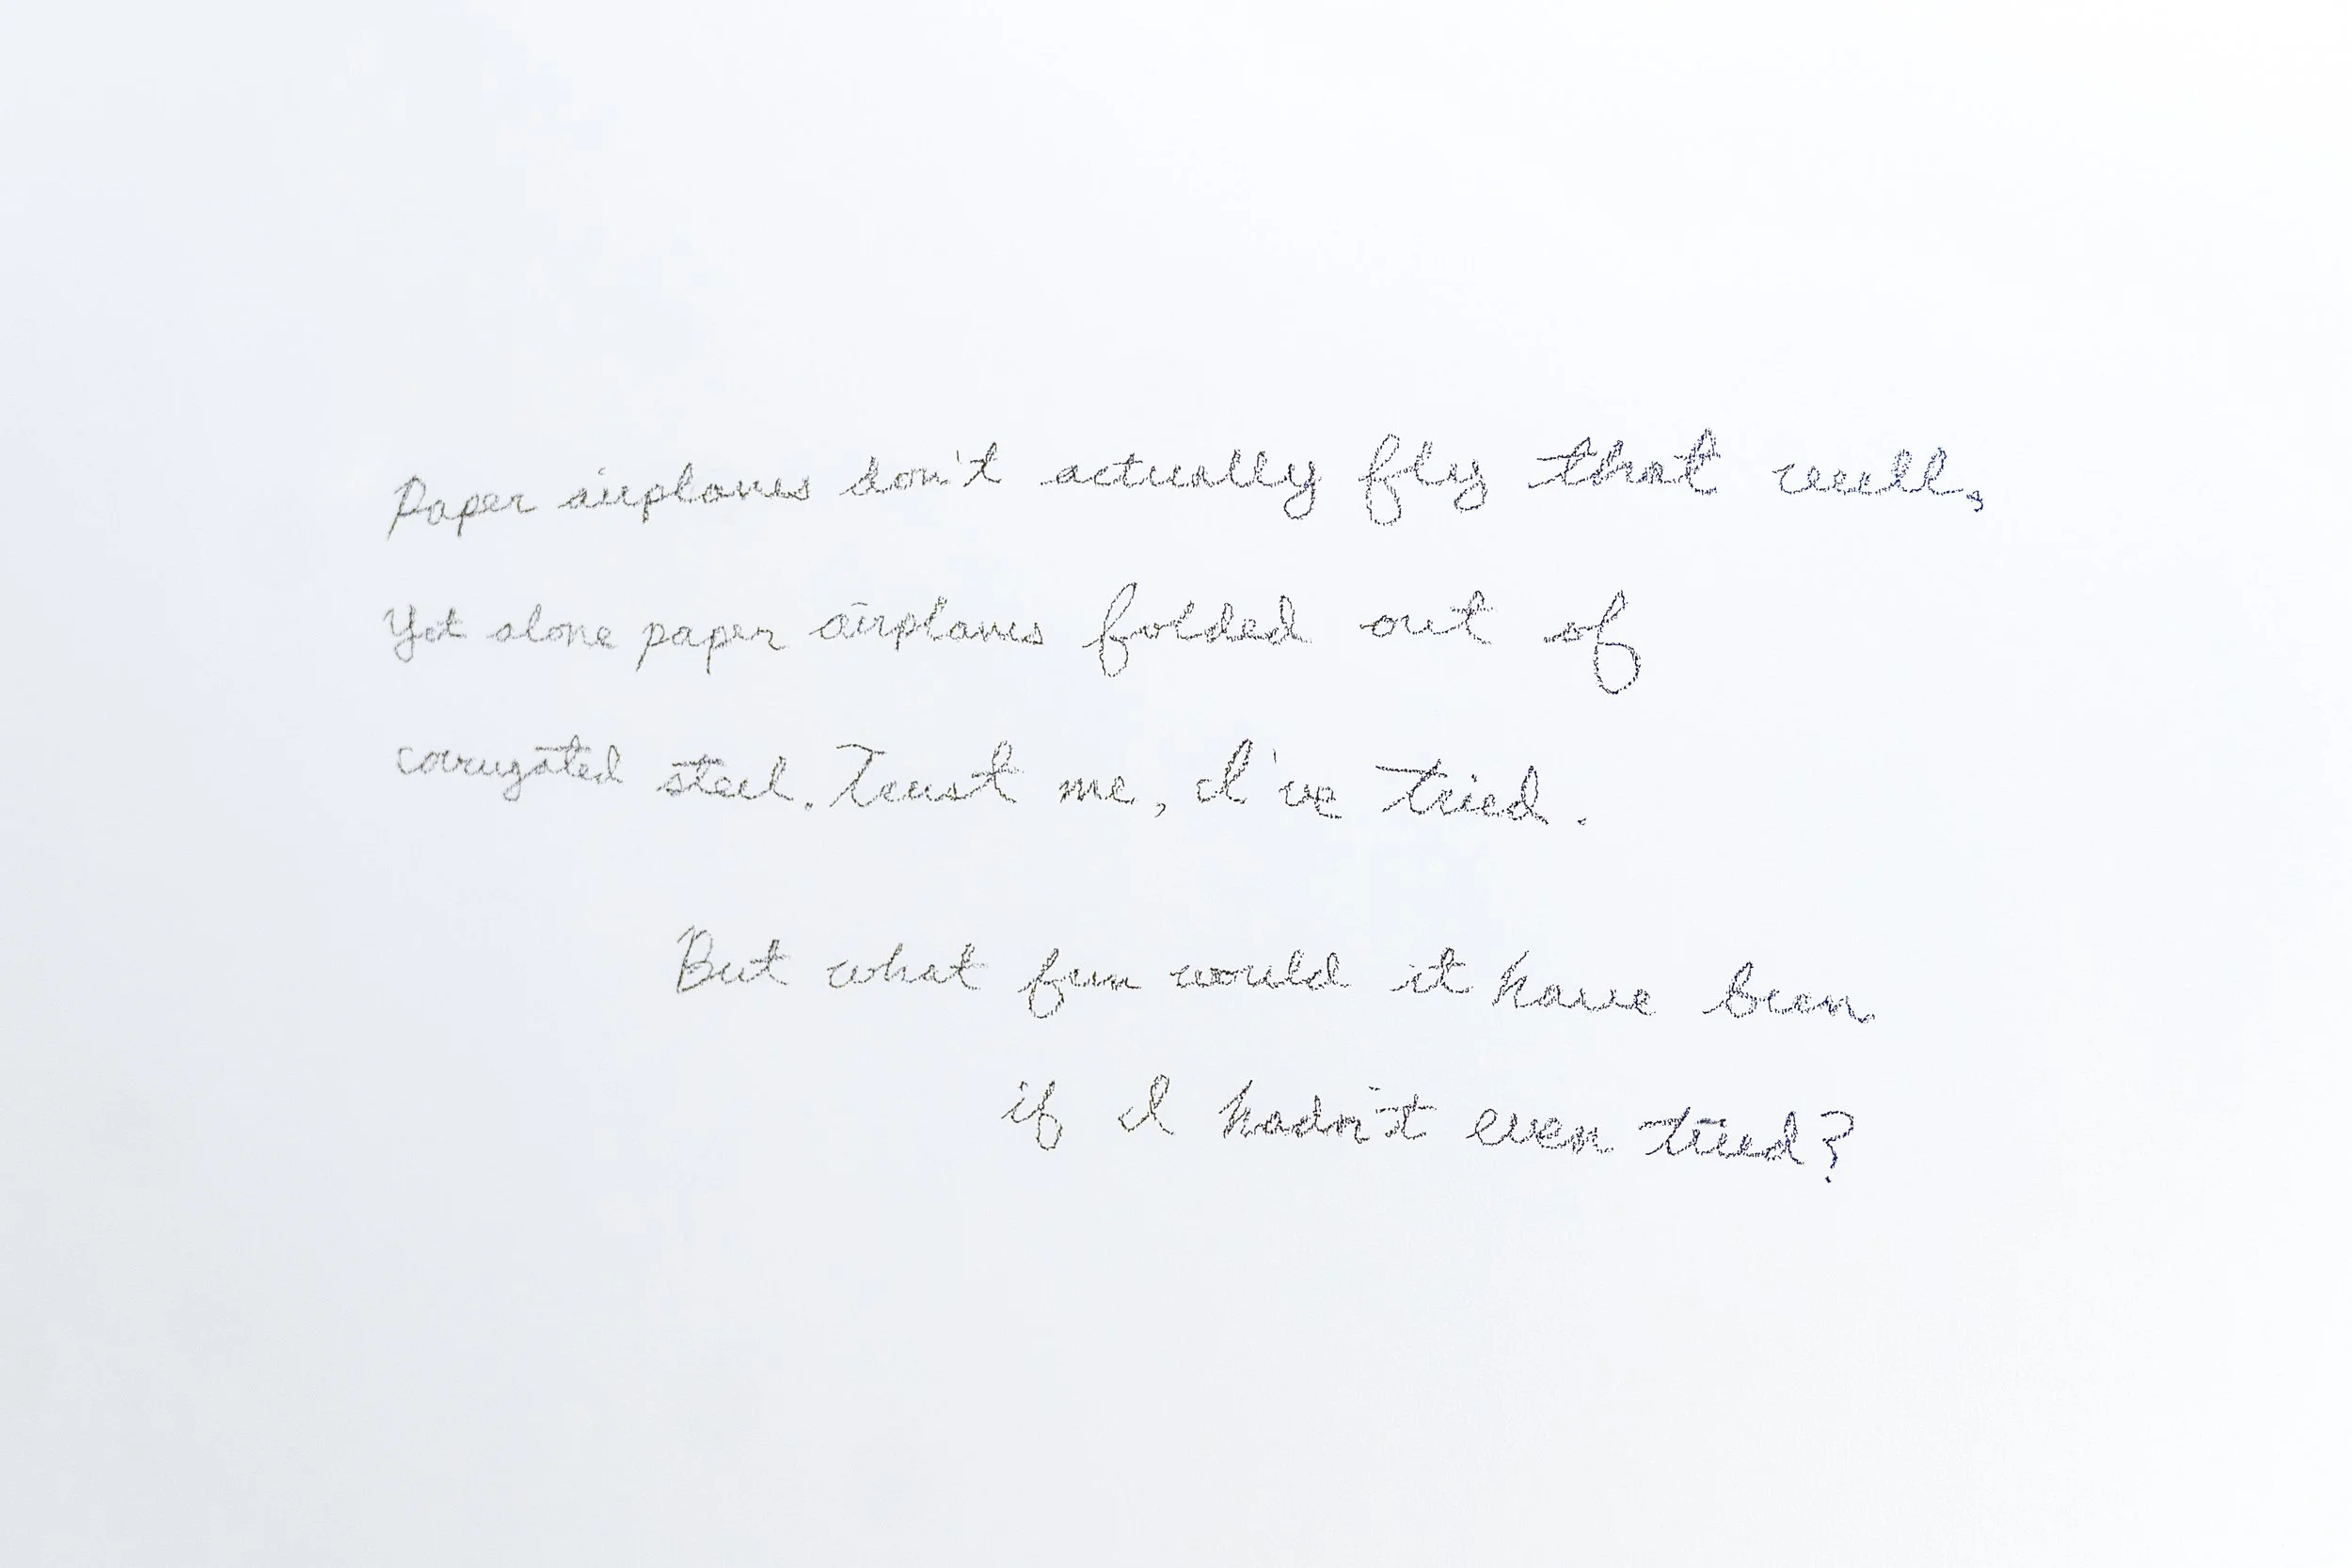 Paper airplanes don't actually fly that well,
Yet alone paper airplanes folded out of
corrugated steel. Trust me, I've tried.
But what fun would it have been
if I hadn't even tried?